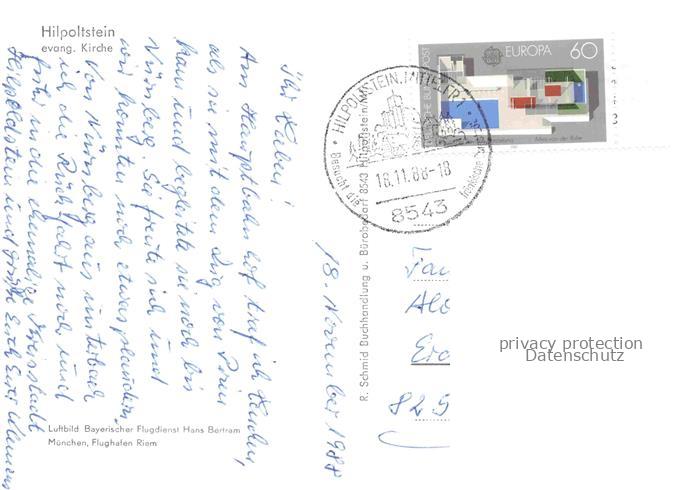 Hilpoltstein
evang. Kirche
Ihr Lieben!
Am Hauptbahnhof traf ich
als sie mit dem Zug von
kam und begleitete sie noch bis
Nürnberg. Sie freute sich und
wir konnten noch etwas plaudern.
Von Nürnberg aus unterbrach
ich die Rückfahrt noch und
fuhr in die ehemalige Kreisstadt
Hilpoltstein und grüße Euch Euer
18. November 1988
Luftbild Bayerischer Flugdienst Hans Bertram
München, Flughafen Riem
R. Schmid Buchhandlung u. Bürobedarf 8543 Hilpoltstein/M
HILPOLTSTEIN, MITTELFR
Besucht die
18.11.88-18
8543
EUROPA 60
Mies van der Rohe
Alo
825
privacy protection
Datenschutz